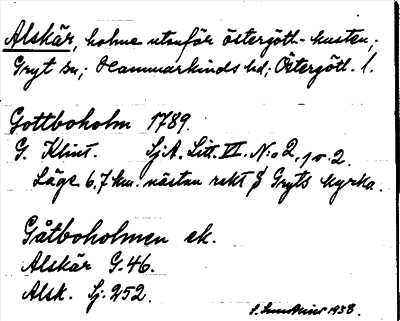 Alskär, holme utanför östergötl. kusten;
Gryt sn; Hammarkinds hd; Östergötl. l.
Gottboholm 1789.
G. Klint. SjA. Litt. VI. N:o 2, 1 o. 2.
Läge 6,7 km. nästan rakt S Gryts kyrka.
Gåtboholmen ek.
Alskär G. 46.
Alsk. Sj. 252.
1938.